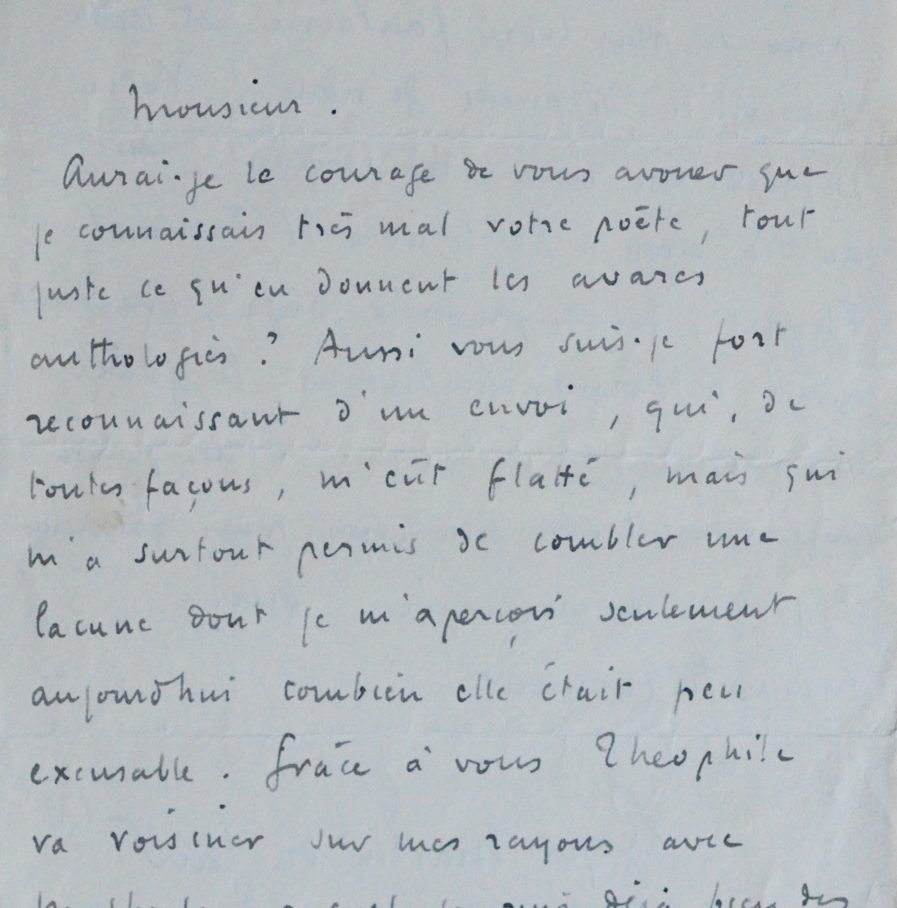 Monsieur.
Aurai-je le courage de vous avouer que
je connaissais très mal votre poète, tout
juste ce qu'en donnent les avares
anthologies ? Aussi vous suis-je fort
reconnaissant d'un envoi, qui, de
toutes façons, m'eût flatté, mais qui
m'a surtout permis de combler une
lacune dont je m'aperçois seulement
aujourd'hui combien elle était peu
excusable. Grâce à vous Theophile
va voisiner sur mes rayons avec
déjà bien des